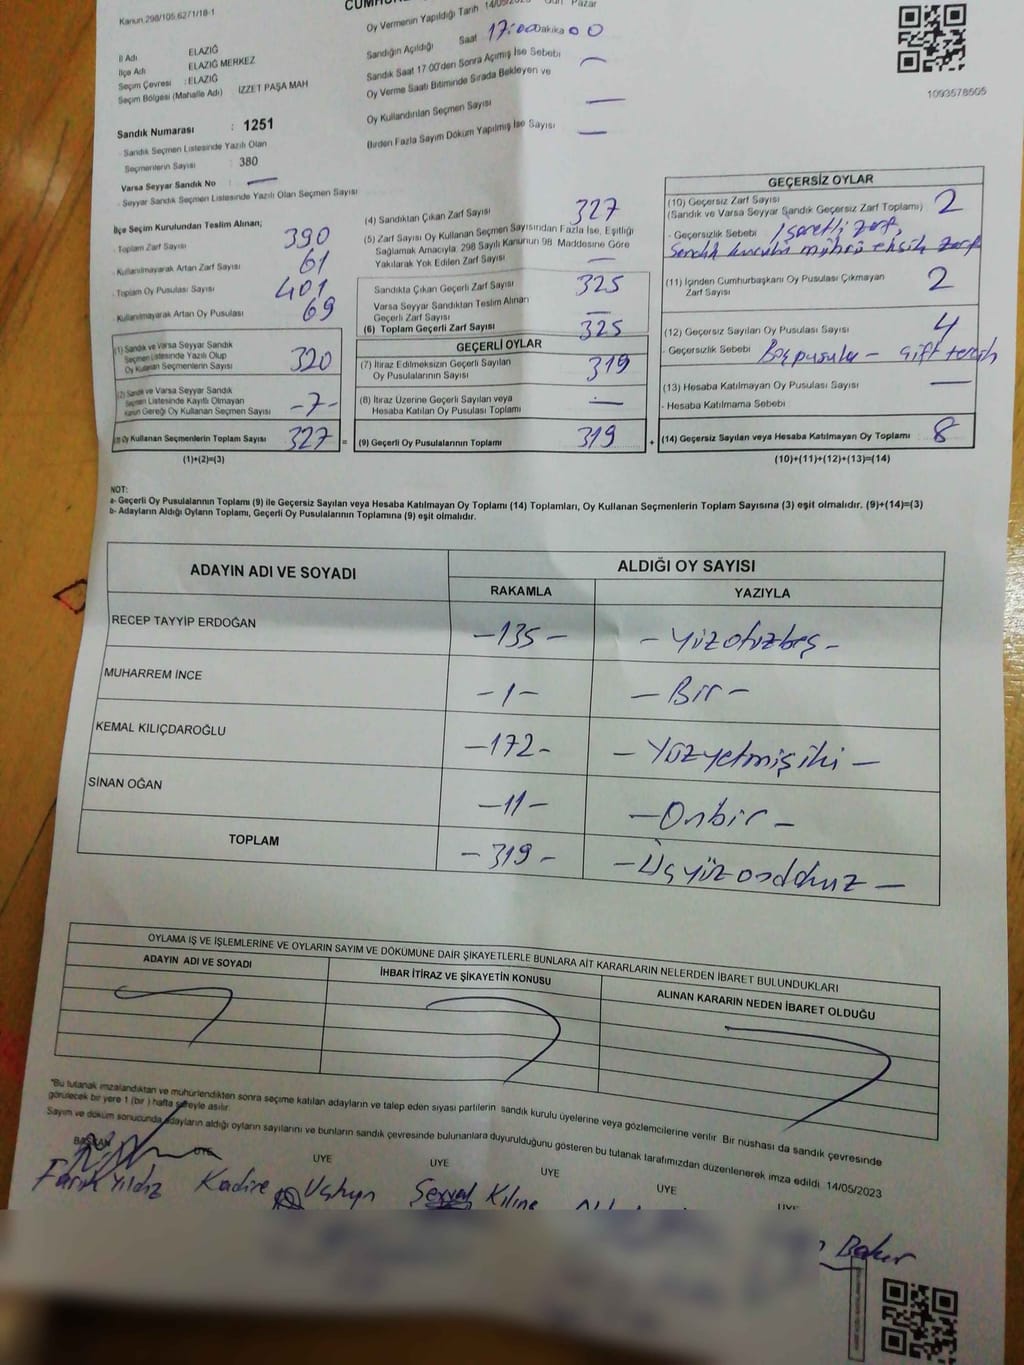 Kanun 298/105,6271/18-1
İl Adı ELAZIĞ
İlçe Adı ELAZIĞ MERKEZ
Seçim Çevresi : ELAZIĞ
Seçim Bölgesi (Mahalle Adı) İZZET PAŞA MAH
Sandık Numarası : 1251
Sandık Seçmen Listesinde Yazılı Olan
Seçmenlerin Sayısı : 380
Varsa Seyyar Sandık No : —
- Seyyar Sandık Seçmen Listesinde Yazılı Olan Seçmen Sayısı
Oy Vermenin Yapıldığı Tarih 14/05/2023 Gün Pazar
Sandığın Açıldığı Saat 17:00 Dakika 00
Sandık Saat 17:00'den Sonra Açımış İse Sebebi —
Oy Verme Saati Bitiminde Sırada Bekleyen ve
Oy Kullandırılan Seçmen Sayısı —
Birden Fazla Sayım Döküm Yapılmış İse Sayısı —
1093578505
İlçe Seçim Kurulundan Teslim Alınan;
- Toplam Zarf Sayısı 390
- Kullanılmayarak Artan Zarf Sayısı 61
- Toplam Oy Pusulası Sayısı 401
- Kullanılmayarak Artan Oy Pusulası 69
(1) Sandık ve Varsa Seyyar Sandık
Seçmen Listesinde Yazılı Olup
Oy Kullanan Seçmenlerin Sayısı 320
(2) Sandık ve Varsa Seyyar Sandık
Seçmen Listesinde Kayıtlı Olmayan
Kanun Gereği Oy Kullanan Seçmen Sayısı -7-
(3) Oy Kullanan Seçmenlerin Toplam Sayısı 327 =
(1)+(2)=(3)
(4) Sandıktan Çıkan Zarf Sayısı 327
(5) Zarf Sayısı Oy Kullanan Seçmen Sayısından Fazla İse, Eşitliği
Sağlamak Amacıyla, 298 Sayılı Kanunun 98. Maddesine Göre
Yakılarak Yok Edilen Zarf Sayısı —
Sandıkta Çıkan Geçerli Zarf Sayısı 325
Varsa Seyyar Sandıktan Teslim Alınan
Geçerli Zarf Sayısı —
(6) Toplam Geçerli Zarf Sayısı 325
GEÇERLİ OYLAR
(7) İtiraz Edilmeksizin Geçerli Sayılan
Oy Pusulalarının Sayısı 319
(8) İtiraz Üzerine Geçerli Sayılan veya
Hesaba Katılan Oy Pusulası Toplamı —
(9) Geçerli Oy Pusulalarının Toplamı 319 +
GEÇERSİZ OYLAR
(10) Geçersiz Zarf Sayısı
(Sandık ve Varsa Seyyar Sandık Geçersiz Zarf Toplamı) 2
- Geçersizlik Sebebi İşaretli zarf,
Sandık kurulu mührü eksik zarf
(11) İçinden Cumhurbaşkanı Oy Pusulası Çıkmayan
Zarf Sayısı 2
(12) Geçersiz Sayılan Oy Pusulası Sayısı 4
- Geçersizlik Sebebi Boş pusula - Çift tercih
(13) Hesaba Katılmayan Oy Pusulası Sayısı —
- Hesaba Katılmama Sebebi
(14) Geçersiz Sayılan veya Hesaba Katılmayan Oy Toplamı 8
(10)+(11)+(12)+(13)=(14)
NOT:
a- Geçerli Oy Pusulalarının Toplamı (9) ile Geçersiz Sayılan veya Hesaba Katılmayan Oy Toplamı (14) Toplamları, Oy Kullanan Seçmenlerin Toplam Sayısına (3) eşit olmalıdır. (9)+(14)=(3)
b- Adayların Aldığı Oyların Toplamı, Geçerli Oy Pusulalarının Toplamına (9) eşit olmalıdır.
ADAYIN ADI VE SOYADI ALDIĞI OY SAYISI
RAKAMLA YAZIYLA
RECEP TAYYİP ERDOĞAN -135- -Yüzotuzbeş-
MUHARREM İNCE -1- -Bir-
KEMAL KILIÇDAROĞLU -172- -Yüzyetmişiki-
SİNAN OĞAN -11- -Onbir-
TOPLAM -319- -Üçyüzondokuz-
OYLAMA İŞ VE İŞLEMLERİNE VE OYLARIN SAYIM VE DÖKÜMÜNE DAİR ŞİKAYETLERLE BUNLARA AİT KARARLARIN NELERDEN İBARET BULUNDUKLARI
ADAYIN ADI VE SOYADI İHBAR İTİRAZ VE ŞİKAYETİN KONUSU ALINAN KARARIN NEDEN İBARET OLDUĞU
"Bu tutanak imzalandıktan ve mühürlendikten sonra seçime katılan adayların ve talep eden siyasi partilerin sandık kurulu üyelerine veya gözlemcilerine verilir. Bir nüshası da sandık çevresinde
görülecek bir yere 1 (bir) hafta süreyle asılır.
Sayım ve döküm sonucunda adayların aldığı oyların sayılarını ve bunların sandık çevresinde bulunanlara duyurulduğunu gösteren bu tutanak tarafımızdan düzenlenerek imza edildi. 14/05/2023
BAŞKAN ÜYE ÜYE ÜYE ÜYE ÜYE ÜYE
Faruk Yıldız Kadire Üstün Sevval Kılınç
Bakır